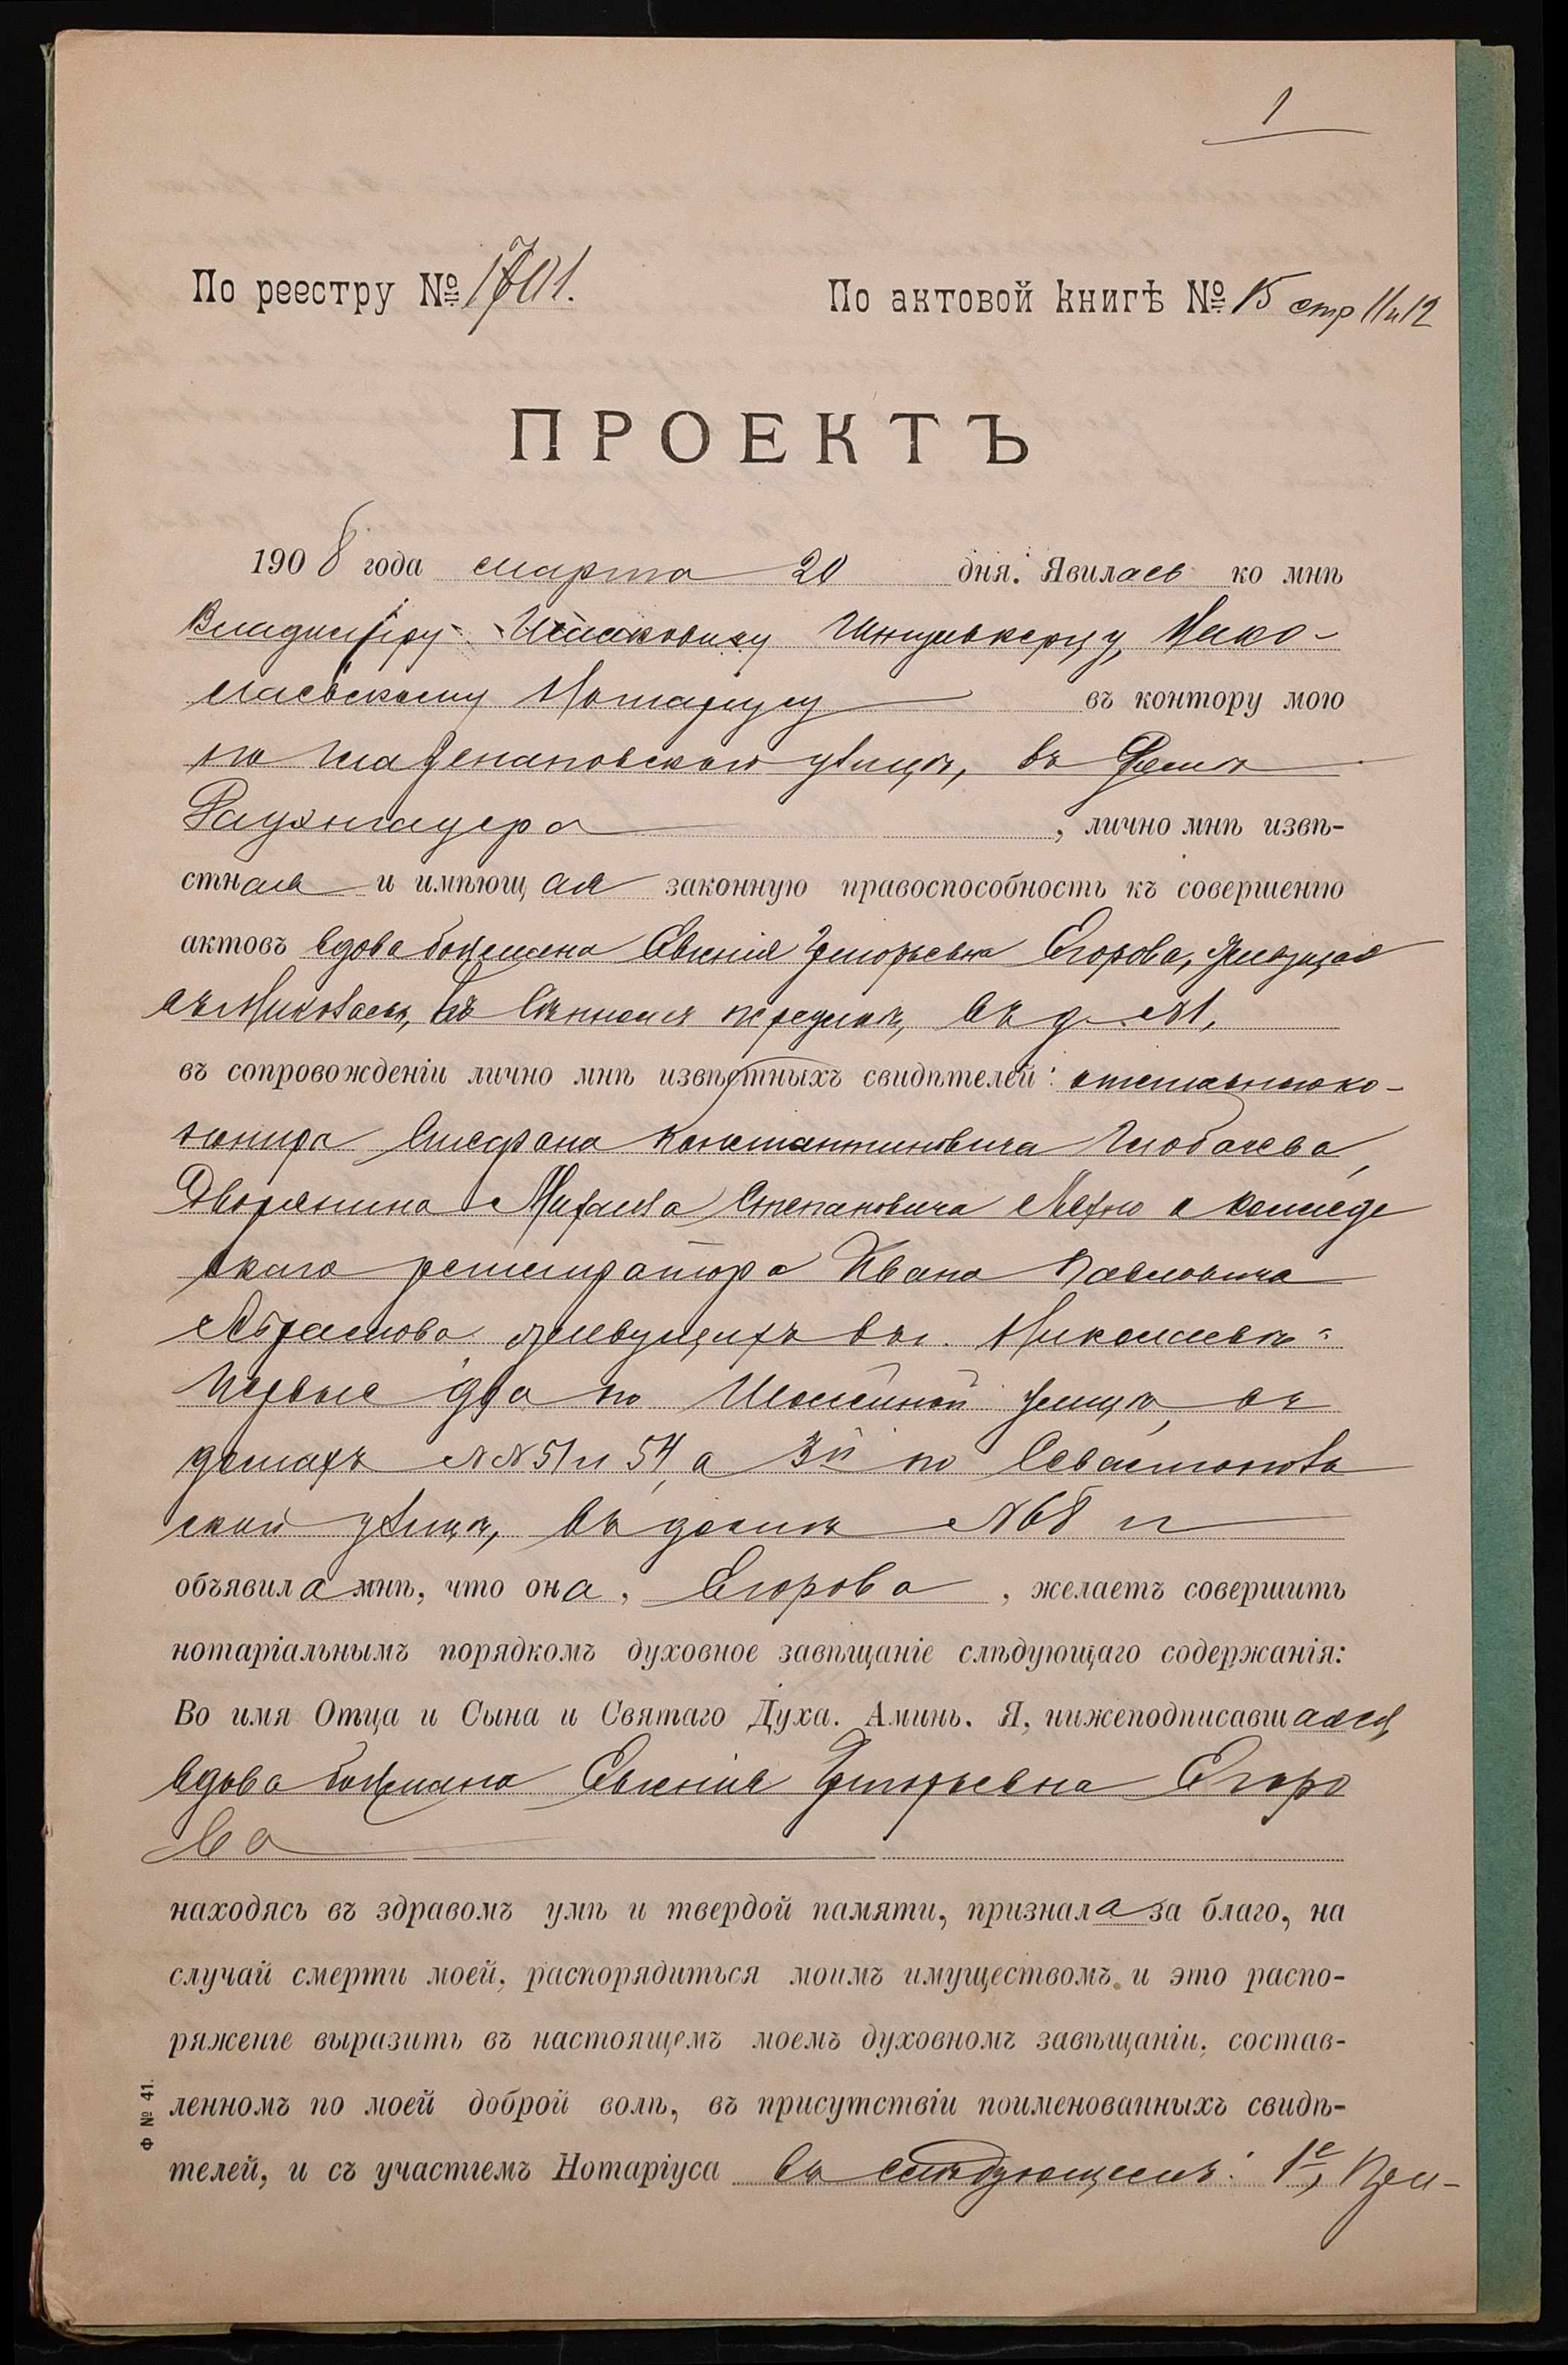 1
По реестру № 1701.
По актовой книгѣ № 15 стр 11 и 12
ПРОЕКТЪ
1908 года марта 20 дня. Явилась ко мнѣ
Владиміру Исааковичу Нико-
лаевскому Нотаріусу въ контору мою
по улицѣ, въ домѣ
, лично мнѣ извѣ-
стная и имѣющая законную правоспособность къ совершенію
актовъ вдова боцмана Евгенія Григорьевна Егорова, живущая
въ Николаевѣ, въ переулкѣ, въ д. №1,
въ сопровожденіи лично мнѣ извѣстныхъ свидѣтелей: отставного ко-
Константиновича
Дворянина Михаила Степановича и коллеж
скаго регистратора Ивана Павловича
Абрамова живущихъ въ г. Николаевѣ:
первые два по улицѣ, въ
домахъ №№ 51 и 54, а 3й по Севастополь
ской улицѣ, въ домѣ №68 и
объявила мнѣ, что она, Егорова, желаетъ совершить
нотаріальнымъ порядкомъ духовное завѣщаніе слѣдующаго содержанія:
Во имя Отца и Сына и Святаго Духа. Аминь. Я, нижеподписавшаяся,
вдова боцмана Евгенія Григорьевна Егоро
ва
находясь въ здравомъ умѣ и твердой памяти, признала за благо, на
случай смерти моей, распорядиться моимъ имуществомъ и это распо-
ряженіе выразить въ настоящемъ моемъ духовномъ завѣщаніи, состав-
ленномъ по моей доброй волѣ, въ присутствіи поименованныхъ свидѣ-
телей, и съ участіемъ Нотаріуса въ слѣдующемъ: 1е, При-
Ф № 41.